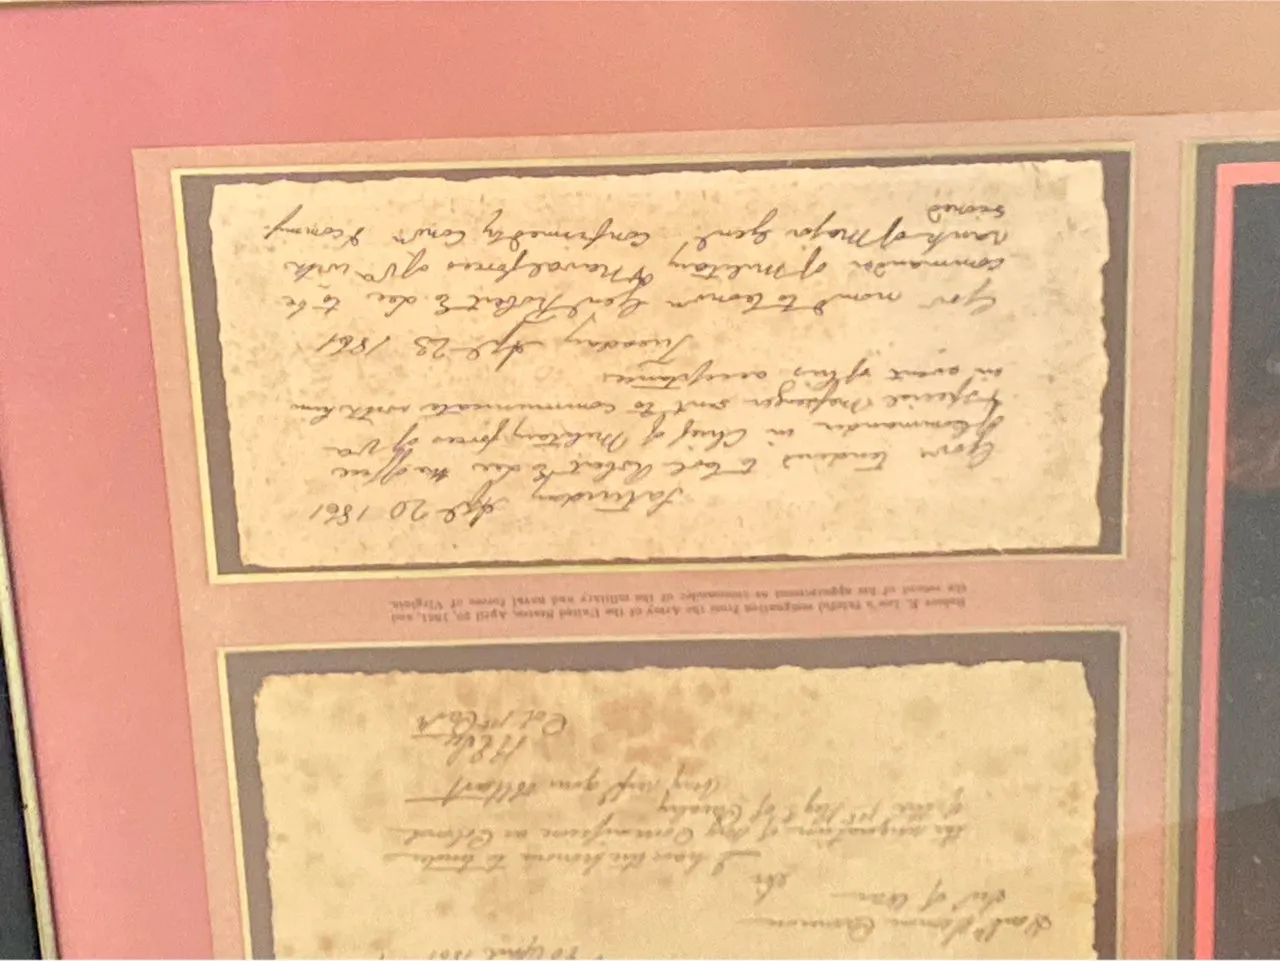 20 April 1861
Honl Simon Cameron
Secy of War
Sir
I have the honour to tender
the resignation of my Commission as Colonel
of the 1st Regt of Cavalry
Very respy your Obt Servt
R E Lee
Col 1st Cavy
Robert E. Lee's fateful resignation from the Army of the United States, April 20, 1861, and
the record of his appointment as commander of the military and naval forces of Virginia.
Saturday Apl 20 1861
Govr tenders to Col Robert E Lee the office
of Commander in Chief of Military forces of Va
& special messenger sent to communicate with him
in event of his acceptance
Tuesday Apl 23 1861
Gov nomd to Conven Genl Robert E. Lee to be
commander of Military & Naval forces of Va with
rank of Major Genl confirmed by Conv.